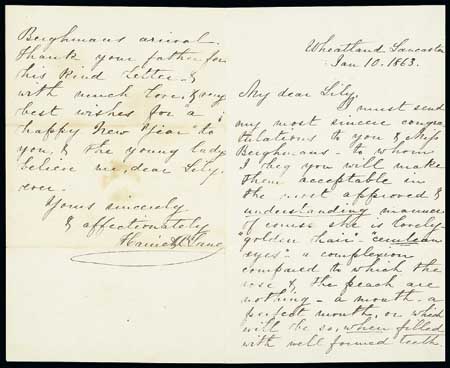 Wheatland Lancaster
Jan 10. 1863.
My dear Lily,
I must send
my most sincere congra-
tulations to you & Miss
Berghmans - to whom
I beg you will make
them acceptable in
the most approved &
understanding manner
Of course she is lovely
"golden hair" - "cerulean
eyes" - a complexion
compared to which the
rose & the peach are
nothing - a mouth - a
perfect mouth, or which
will be so, when filled
with well formed teeth.
Berghmans arrival.
Thank your father for
his kind letter - &
with much love, & very
best wishes for "a
happy New Year" to
you, & the young lady
believe me, dear Lily,
ever.
Yours sincerely
& affectionately
Harriet Lane